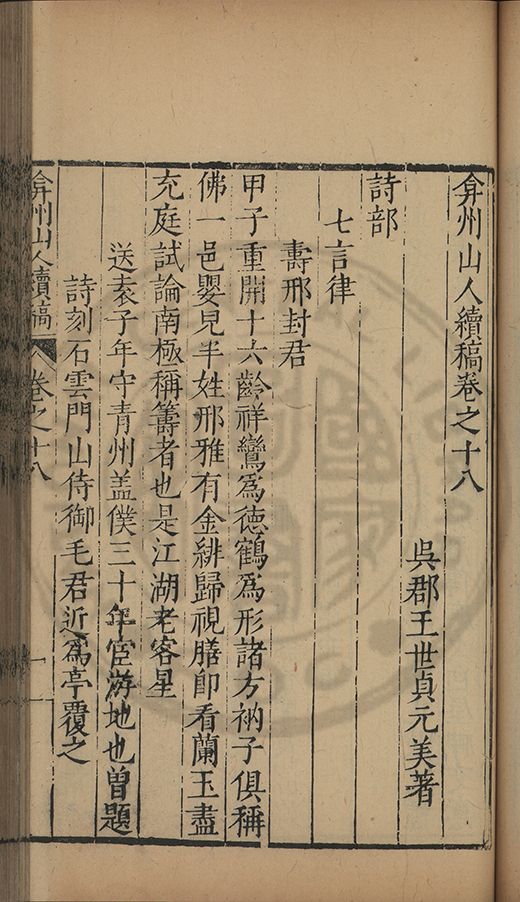 弇州山人續稿卷之十八
吳郡王世貞元美著
詩部
七言律
壽邢封君
甲子重開十六齡祥鸞為德鶴為形諸方衲子俱稱
佛一邑嬰兒半姓邢雅有金緋歸視膳卽看蘭玉盡
充庭試論南極稱籌者也是江湖老客星
送袁子年守青州盖僕三十年宦游地也曾題
詩刻石雲門山侍御毛君近為亭覆之
弇州山人續稿 卷之十八 一